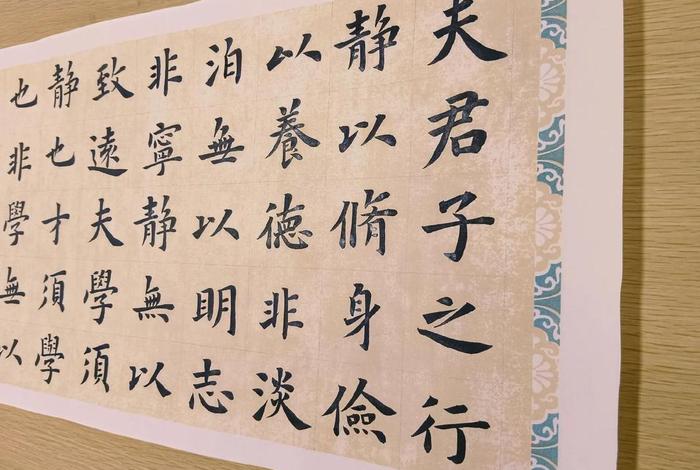 夫君子之行
静以脩身儉
以養德非淡
泊無以明志
非寧静無以
致遠夫學須
静也才須學
也非學無以